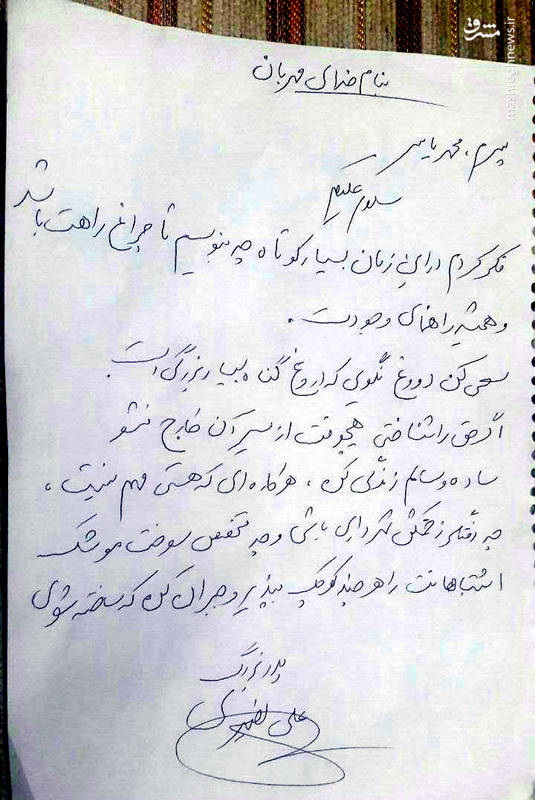 مشرق
mashreghnews.ir
بنام خدای مهربان
پسرم، محمد یاسر
سلام علیکم
فکر کردم در این زمان بسیار کوتاه چه بنویسم تا چراغ راهت باشد
و همیشه راهنمای وجودت.
سعی کن دروغ نگوی که دروغ گناه بسیار بزرگی است
اگر حق را شناختی هیچوقت از مسیر آن خارج نشو
ساده و سالم زندگی کن، هر کاره ای که هستی مهم نیست،
چه رفتگر زحمتکش شهرداری باشی و چه متخصص سوخت موشک
اشتباهاتت را هر چند کوچک بپذیر و جبران کن که ساخته شوی
پدر بزرگ
علی